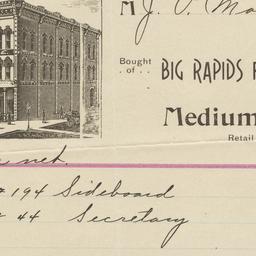 M J. O. Ma
Bought
of
BIG RAPIDS F
Medium
Retail
net.
# 194 Sideboard
" 44 Secretary